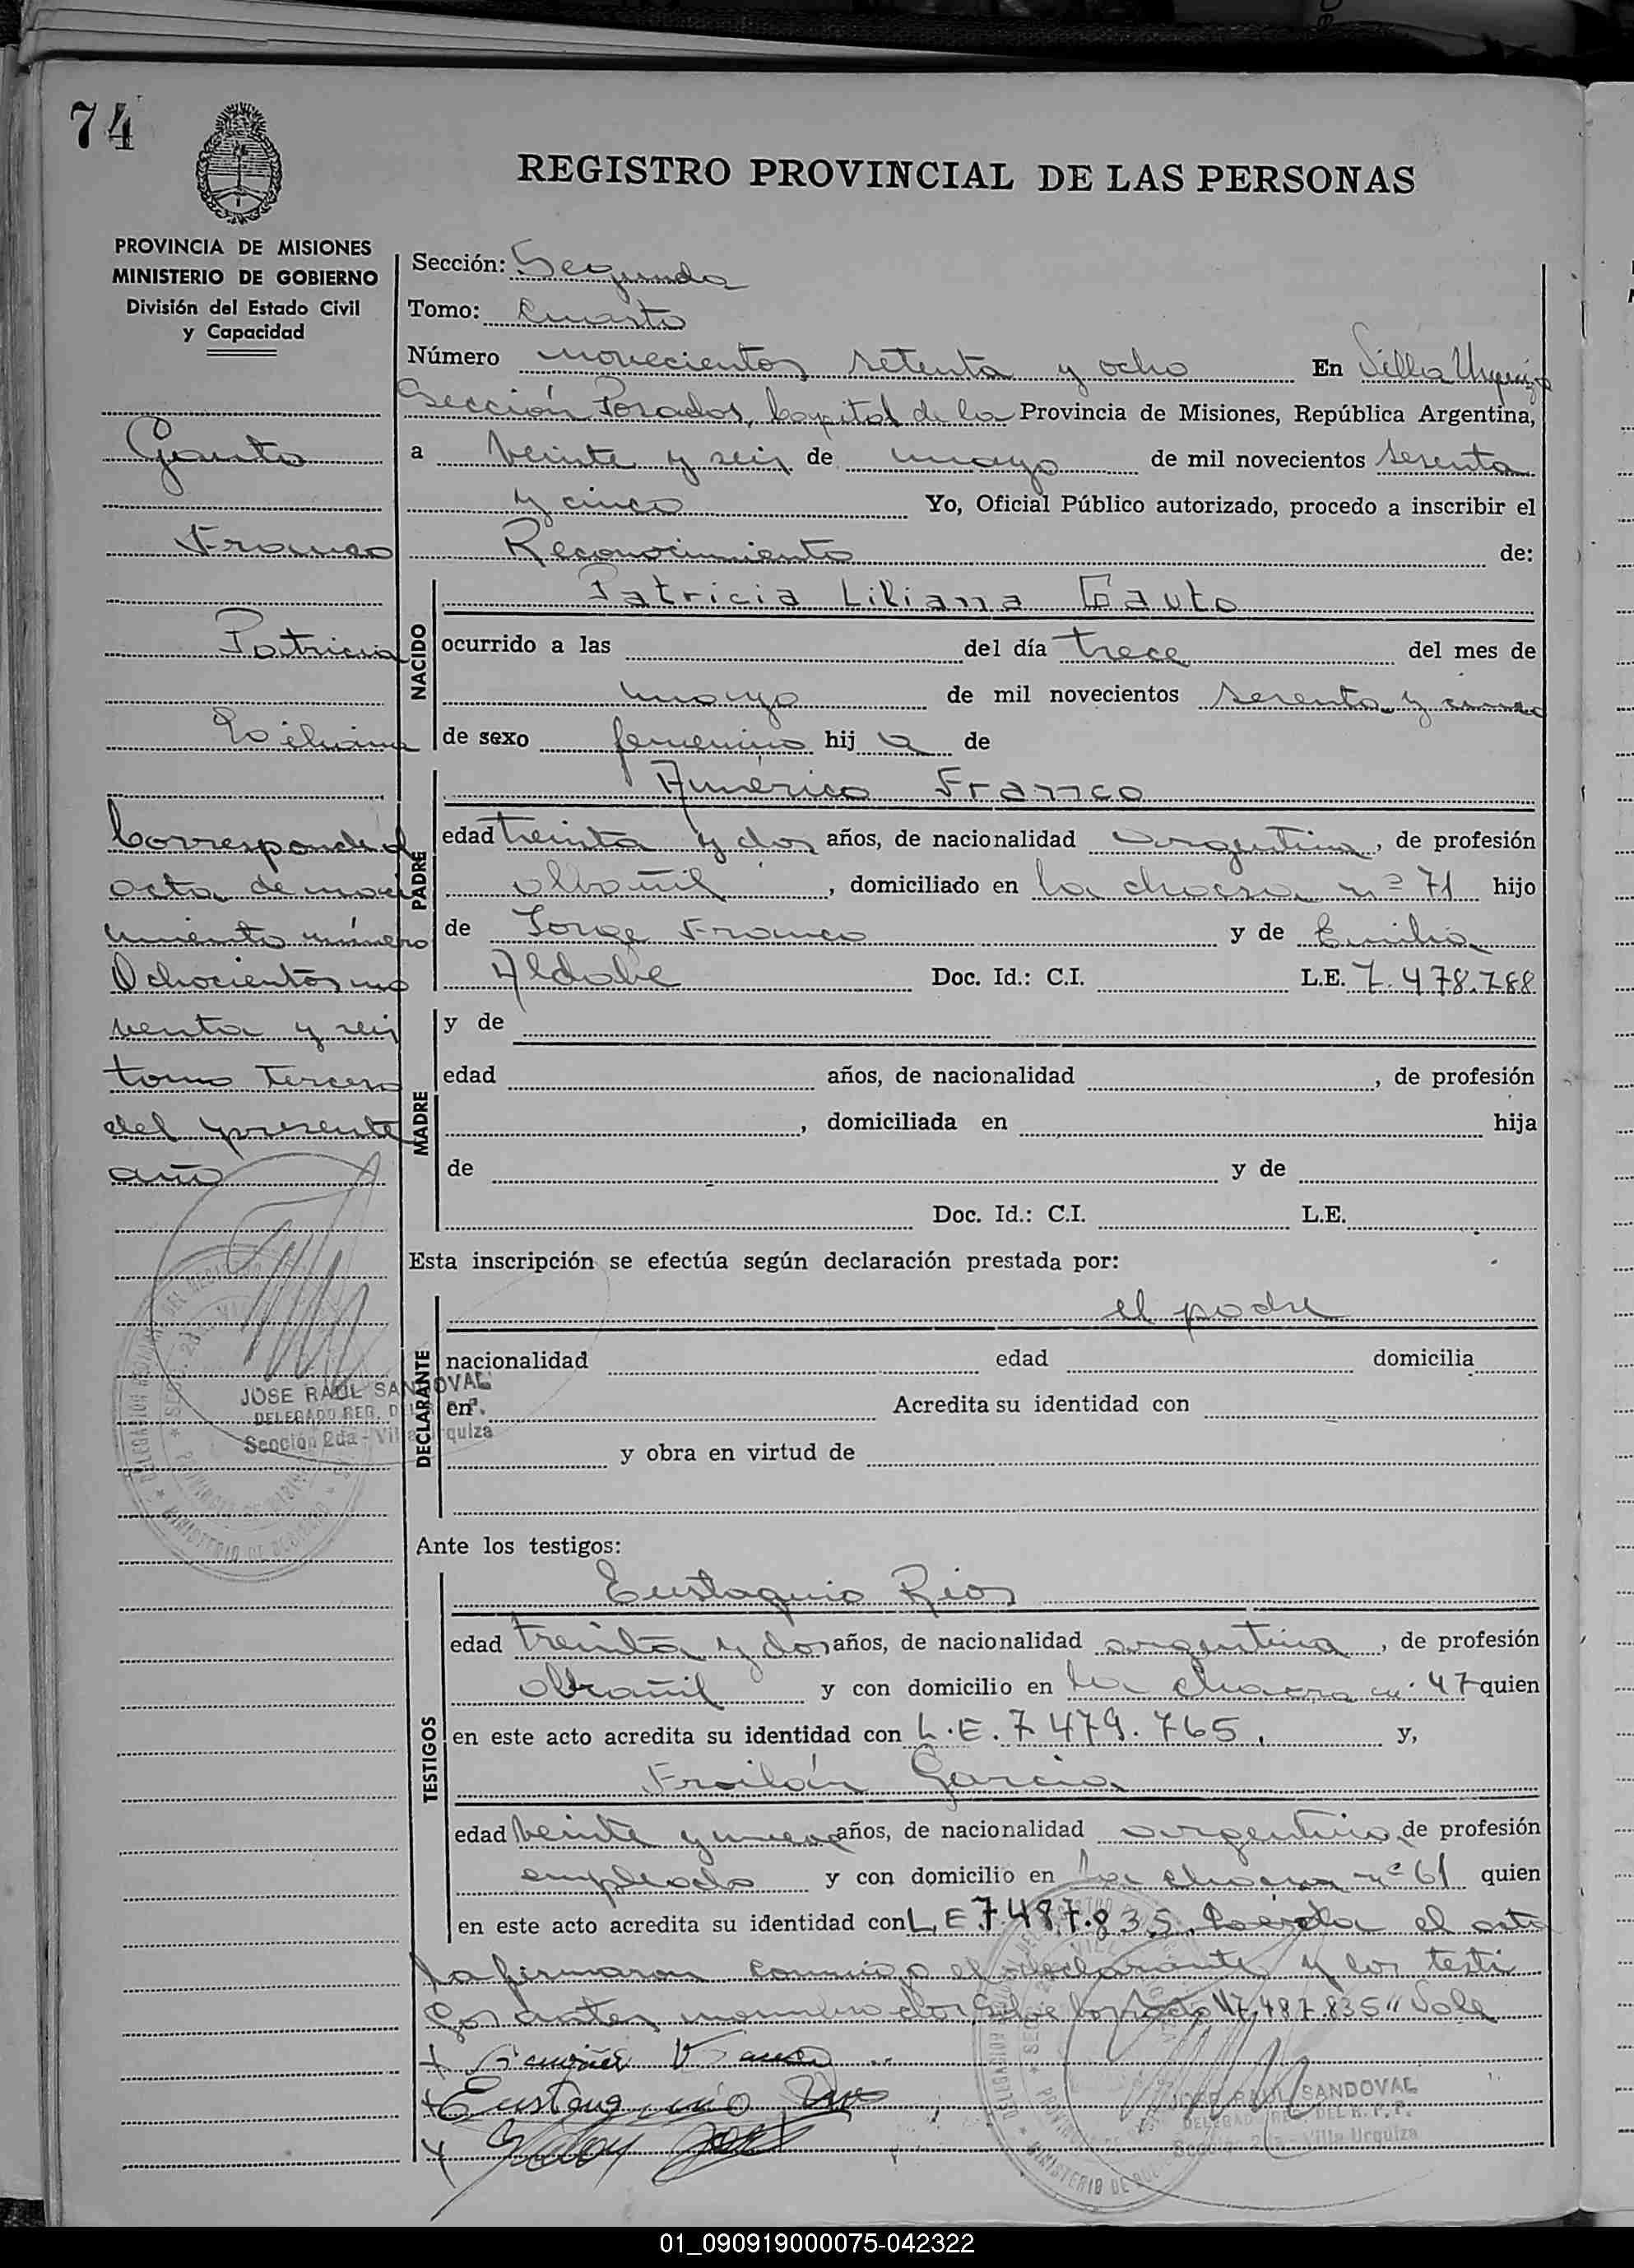 74
REGISTRO PROVINCIAL DE LAS PERSONAS
PROVINCIA DE MISIONES
MINISTERIO DE GOBIERNO
División del Estado Civil
y Capacidad
Gauto
Franco
Patricia
Liliana
Corresponde al
acta de naci
miento número
Ochocientos no
venta y seis
tomo Tercero
del presente
año
JOSE RAUL SANDOVAL
DELEGADO REG. DEL R. P. P.
Sección 2da - Villa Urquiza
Sección: Segunda
Tomo: Cuarto
Número novecientos setenta y ocho En Villa Urquiza
Sección Posadas, Capital de la Provincia de Misiones, República Argentina,
a veinte y seis de mayo de mil novecientos sesenta
y cinco Yo, Oficial Público autorizado, procedo a inscribir el
Reconocimiento de:
NACIDO
Patricia Liliana Gauto
ocurrido a las del día trece del mes de
mayo de mil novecientos sesenta y cinco
de sexo femenino hij a de
PADRE
Américo Franco
edad treinta y dos años, de nacionalidad argentina, de profesión
albañil, domiciliado en la chacra nº 71 hijo
de Jorge Franco y de Emilia
Aldobe Doc. Id.: C.I. L.E. 7.478.788
MADRE
y de
edad años, de nacionalidad , de profesión
, domiciliada en hija
de y de
Doc. Id.: C.I. L.E.
Esta inscripción se efectúa según declaración prestada por:
DECLARANTE
el padre
nacionalidad edad domicilia
en Acredita su identidad con
y obra en virtud de
Ante los testigos:
TESTIGOS
Eustaquio Rios
edad treinta y dos años, de nacionalidad argentina, de profesión
albañil y con domicilio en la chacra nº 47 quien
en este acto acredita su identidad con L.E. 7.479.765, y,
Froilán Garcia
edad veinte y nueve años, de nacionalidad argentino de profesión
empleado y con domicilio en la chacra nº 61 quien
en este acto acredita su identidad con L.E 7.487.835. Leída el acta
la firmaron conmigo el declarante y los testi
gos antes nombrados. Sobre borrado "7.487.835" Vale
Eustaquio Rios
JOSE RAUL SANDOVAL
DELEGADO REG. DEL R. P. P.
Sección 2da - Villa Urquiza
01_090919000075-042322